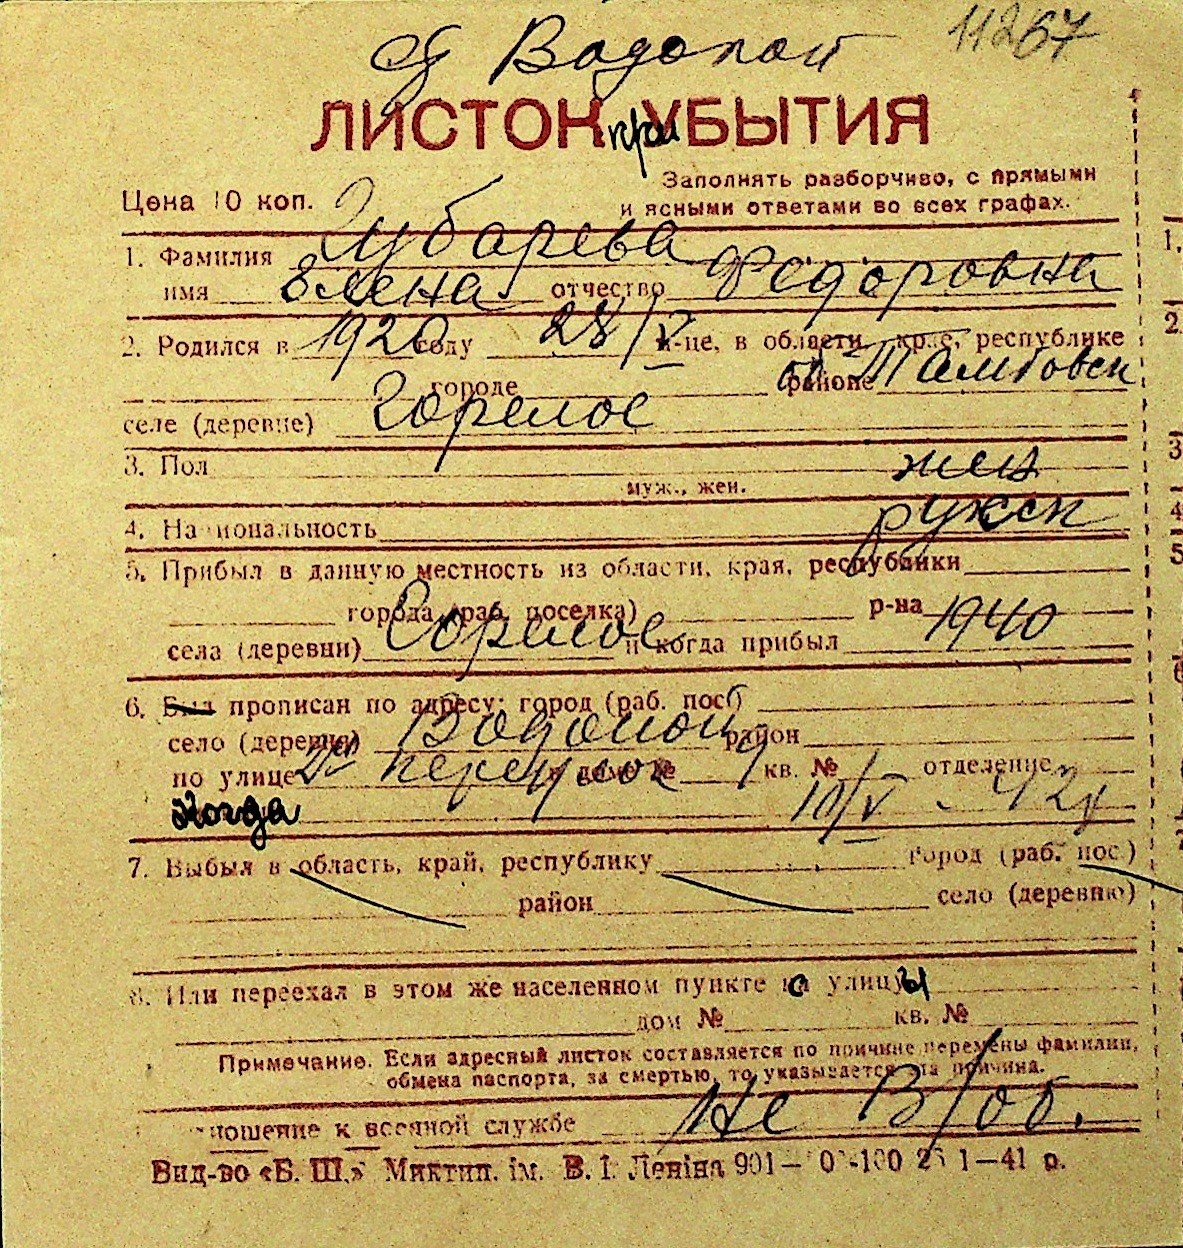 Водопой 11267
ЛИСТОК при УБЫТИЯ
Цена 10 коп. Заполнять разборчиво, с прямыми
и ясными ответами во всех графах.
1. Фамилия Губарева
имя Елена отчество Федоровна
2. Родился в 1920 году 28/V м-це, в области, крае, республике
городе районе об Тамбовск
селе (деревне) Горелое
3. Пол жен
муж., жен.
4. Национальность русск
5. Прибыл в данную местность из области, края, республики
города (раб. поселка) р-на
села (деревни) Горелое и когда прибыл 1940
6. Был прописан по адресу: город (раб. пос.)
село (деревня) Водопой район
по улице 2й переулок дом № 9 кв. № отделение
когда 10/V - 42г
7. Выбыл в область, край, республику город (раб. пос.)
район село (деревню)
8. Или переехал в этом же населенном пункте с улицы
дом № кв. №
Примечание. Если адресный листок составляется по причине перемены фамилии,
обмена паспорта, за смертью, то указывается эта причина.
отношение к военной службе Не в/об.
Вид-во «Б. Ш.» Миктип. ім. В. І. Леніна 901— 1—41 р.